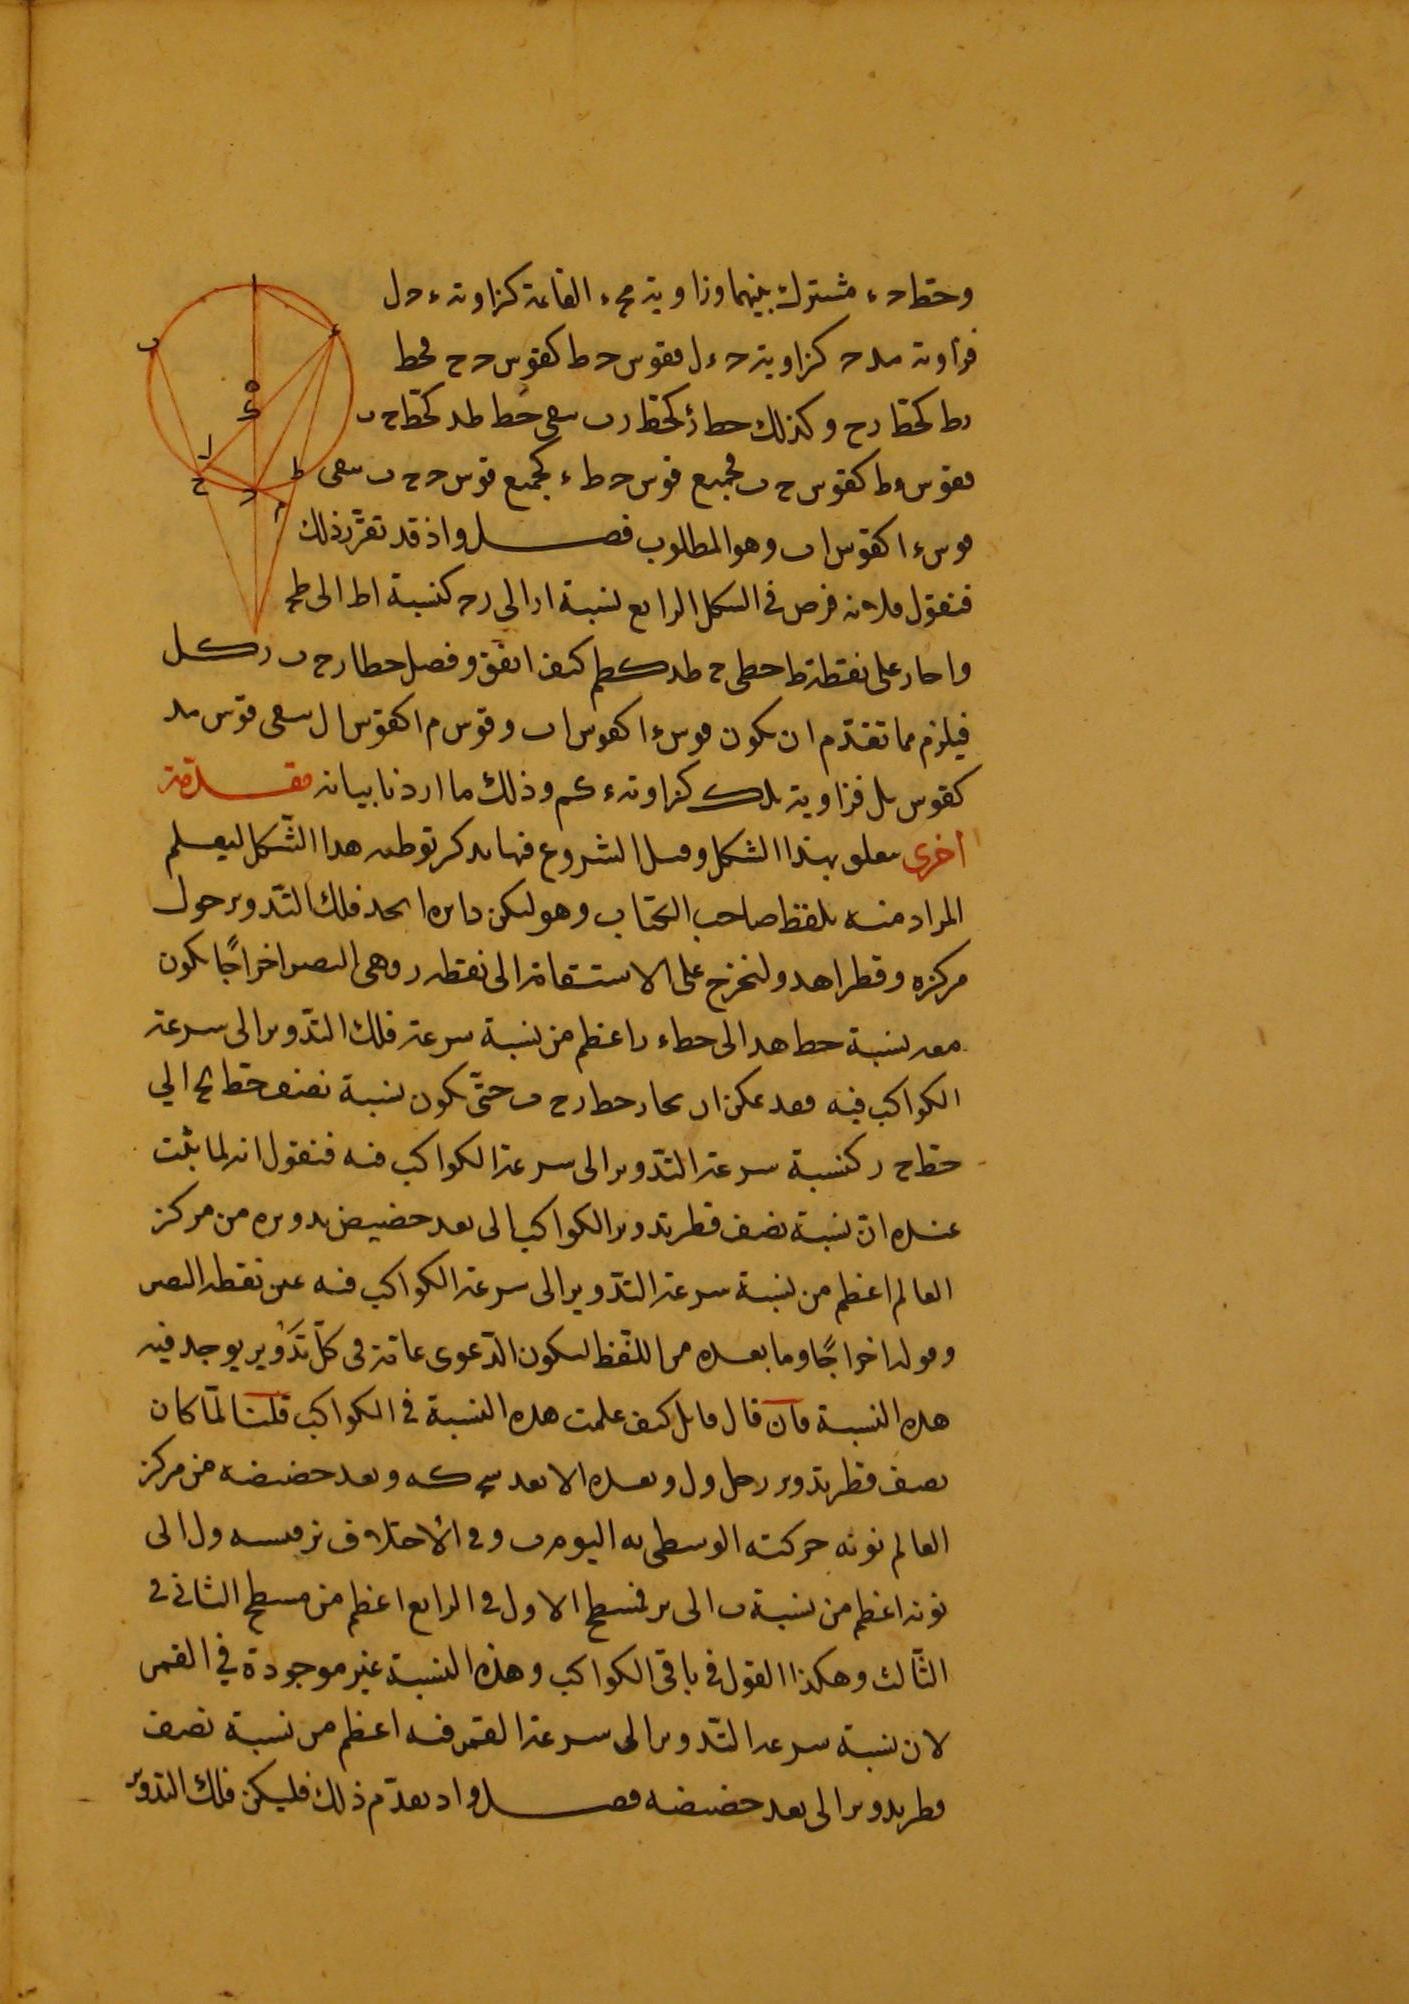 وخط د ء مشترك بينهما وزاوية م ح ء القائمة كزاوية ء د ل
فزاوية م ء د كزاوية د ء ل فقوس د ط كقوس د ح فخط
ر ط كخط ر ح وكذلك خط ر ء كخط ر ب يبقى خط ط ء كخط ح ب
فقوس ء ط كقوس ح ب فجميع قوس د ط ء كجميع قوس د ح ب يبقى
قوس ء ا كقوس ا ب وهو المطلوب فصل واذ قد تقرر ذلك
فنقول فلانه فرض في الشكل الرابع نسبة ا ر الى ر ح كنسبة ا ط الى ط ح
واجاز على نقطة ط خطي كيف اتفق وفصل خطا ر ح ب
فيلزم مما تقدم ان يكون قوس ء ا كقوس ا ب وقوس م ا كقوس ا ل يبقى قوس م ء
كقوس ب ل فزاوية ب ل ك كزاوية ء ك م وذلك ما اردنا بيانه مقدمة
أخرى يتعلق بهذا الشكل وقبل الشروع فيها يذكر توطئه هذا الشكل ليعلم
المراد منه بلفظ صاحب الكتاب وهو ليكن دايره ا ب ح د فلك التدوير حول
مركزه وقطر ا ه د ولنخرج على الاستقامة الى نقطه ر وهي البصر اخراجًا يكون
معه نسبة خط ه د الى خط د ر اعظم من نسبة سرعة فلك التدوير الى سرعة
الكواكب فيه فقد يمكن ان يجاز خط ر ح ب حتى يكون نسبة نصف خط ب ح الي
خط ح ر كنسبة سرعة التدوير الى سرعة الكواكب فيه فنقول انه لما ثبت
عنده ان نسبة نصف قطر تدوير الكواكب الى بعد حضيض تدويره من مركز
العالم اعظم من نسبة سرعة التدوير الى سرعة الكواكب فيه عين نقطه البصر
وقوله اخراجًا وما بعده من اللفظ ليكون الدعوى عامة في كل تدوير يوجد فيه
هذه النسبة فان قال قايل كيف علمت هذه النسبة في الكواكب قلنا لما كان
نصف قطر تدوير زحل و ل وبعده الابعد وبعد حضيضه من مركز
العالم حركته الوسطى به اليوم ب وفي الاختلاف و ل الى
اعظم من نسبة ب الى فمسطح الاول في الرابع اعظم من مسطح الثاني في
الثالث وهكذا القول في باقي الكواكب وهذه النسبة غير موجودة في القمر
لان نسبة سرعة التدوير الى سرعة القمر فيه اعظم من نسبة نصف
قطر تدويره الى بعد حضيضه فصل واذ تقدم ذلك فليكن فلك التدوير